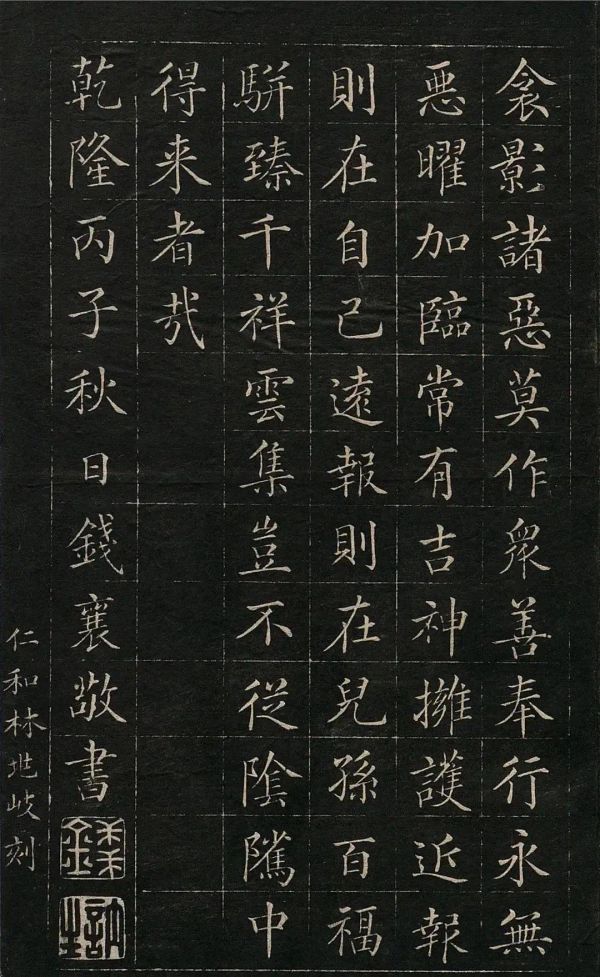 衾影諸惡莫作衆善奉行永無
悪曜加臨常有吉神擁護近報
則在自己遠報則在兒孫百福
駢臻千祥雲集豈不從陰隲中
得来者哉
乾隆丙子秋日錢襄敬書
仁和林岐刻